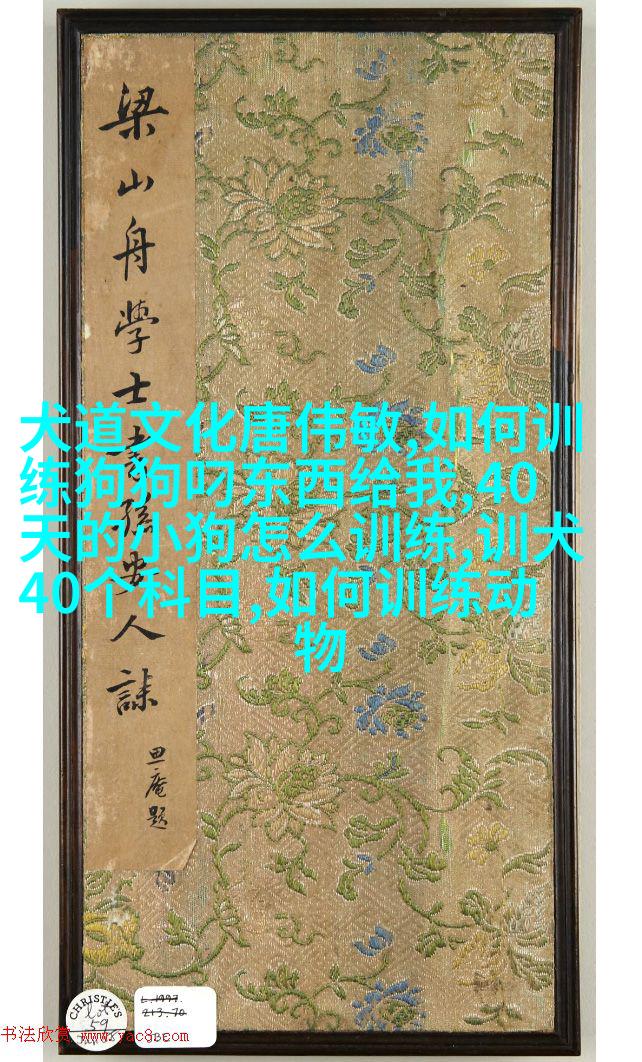 梁山舟學士書孫安人誄
庵題
犬道文化唐伟敏,如何训
练狗狗叼东西给我,40
天的小狗怎么训练,训犬
40个科目,如何训练动
物
CHRISTIE'S
lot
59
L.1997.
213.70
书法欣赏 www.yac8.com